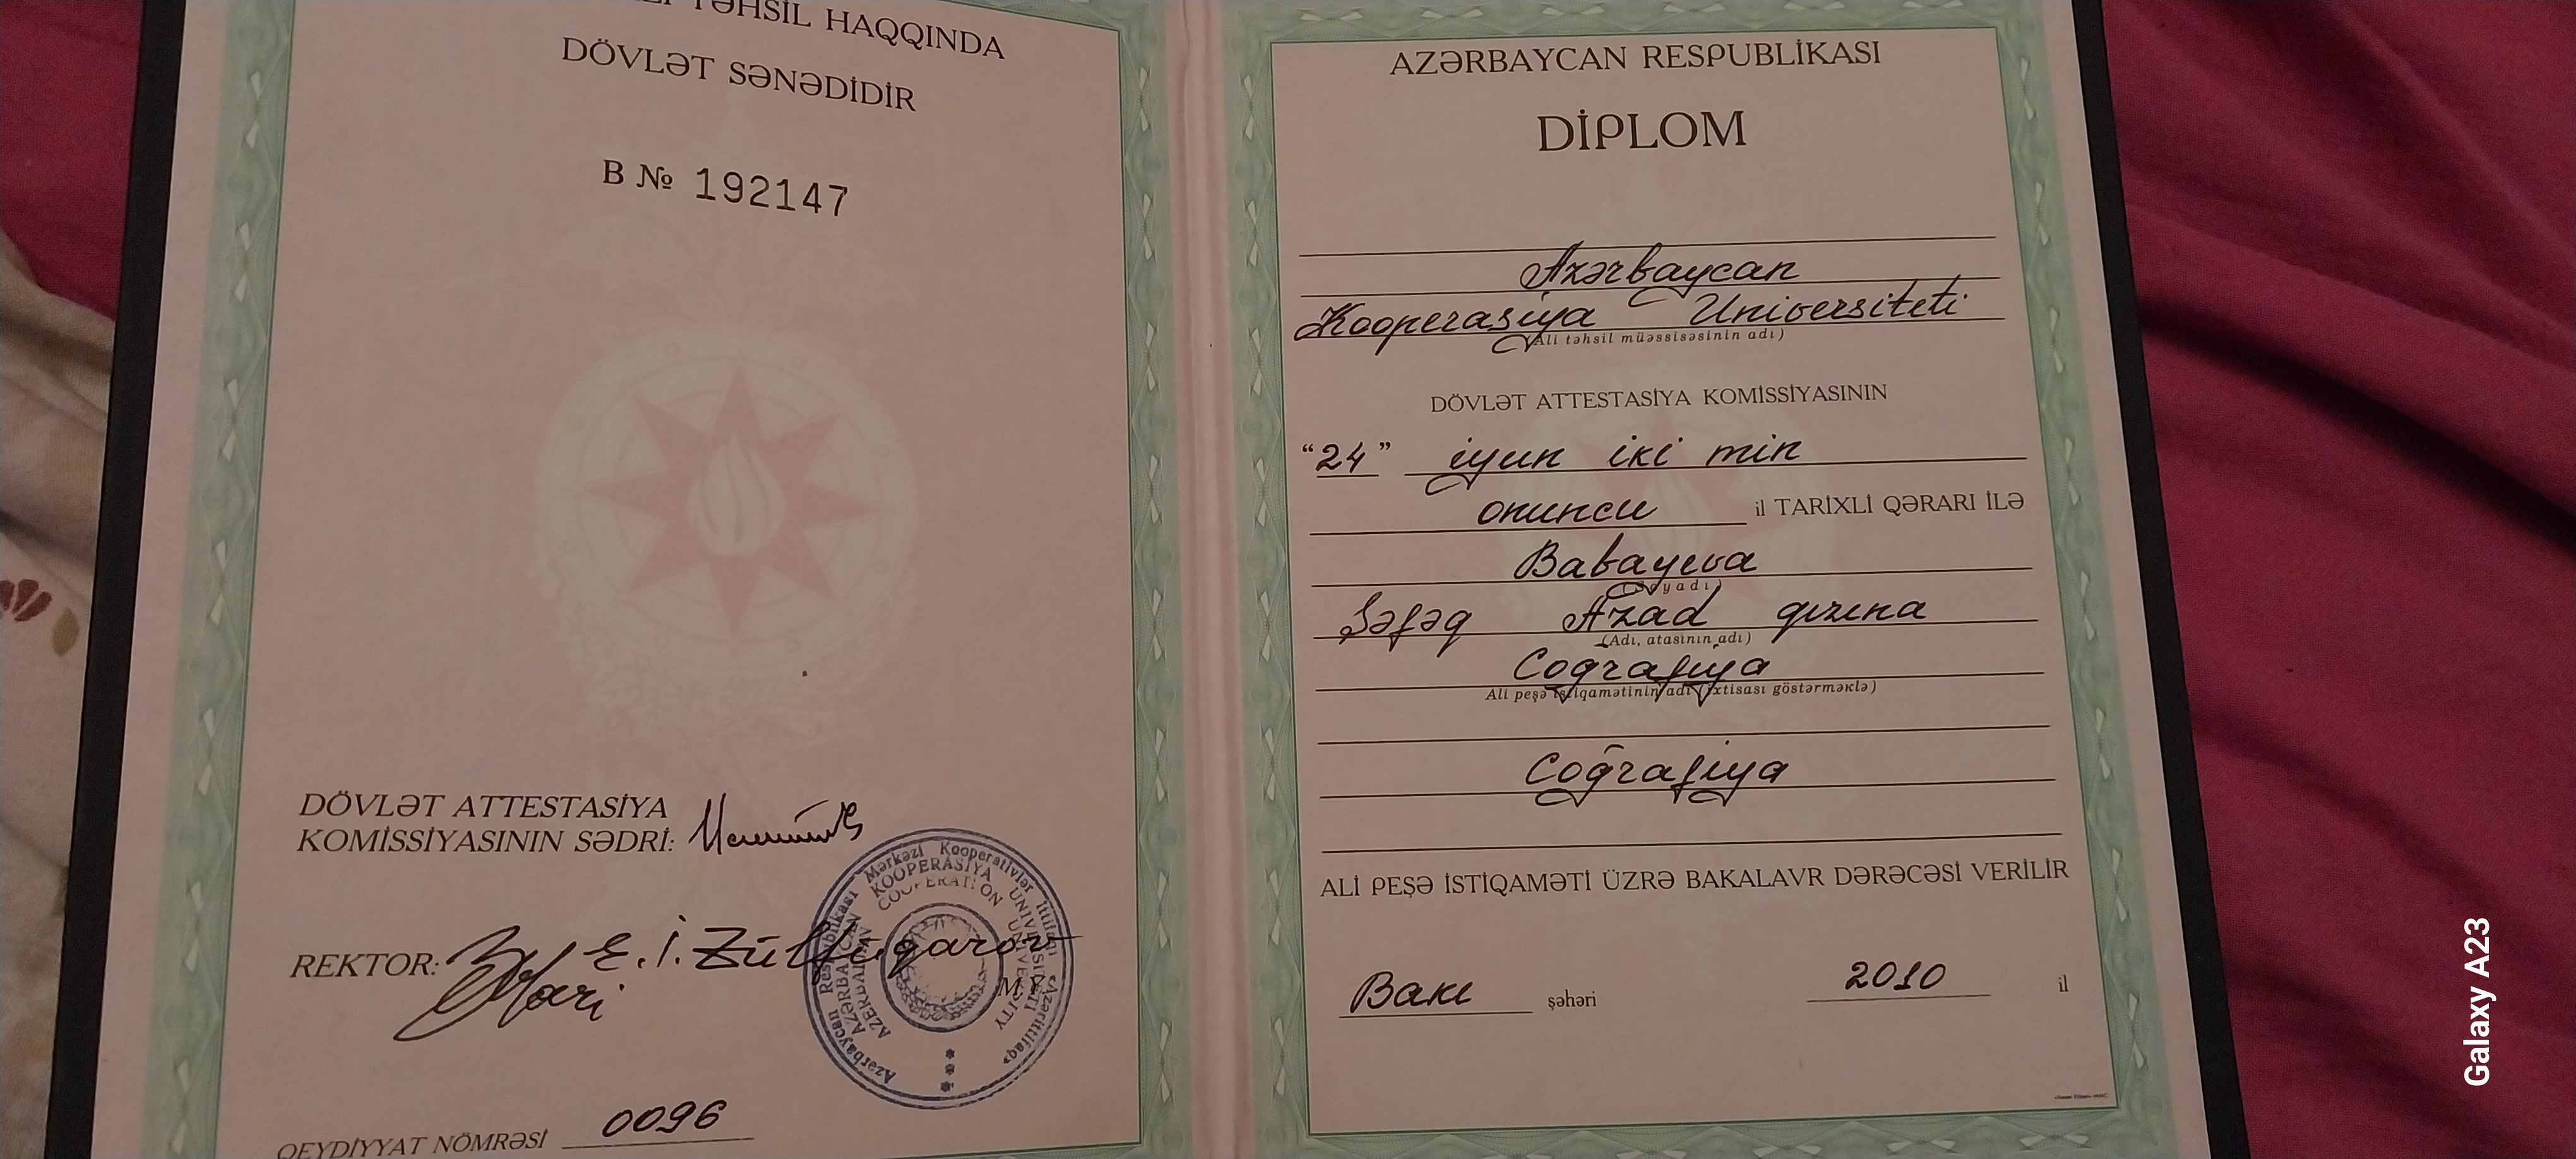 TƏHSİL HAQQINDA
DÖVLƏT SƏNƏDİDİR
B № 192147
DÖVLƏT ATTESTASİYA
KOMISSİYASININ SƏDRİ:
REKTOR: E.İ.Zülfüqarov
M.Y.
Azərbaycan Respublikası Mərkəzi Kooperativlər İttifaqı «Azərittifaq»
AZƏRBAYCAN KOOPERASİYA UNİVERSİTETİ
AZERBAIJAN COOPERATION UNIVERSITY
QEYDİYYAT NÖMRƏSİ 0096
AZƏRBAYCAN RESPUBLİKASI
DİPLOM
Azərbaycan
Kooperasiya Universiteti
(Ali təhsil müəssisəsinin adı)
DÖVLƏT ATTESTASİYA KOMISSİYASININ
“24” iyun iki min
onuncu il TARIXLİ QƏRARI İLƏ
Babayeva
(Soyadı)
Şəfəq Azad qızına
(Adı, atasının adı)
Coğrafiya
Ali peşə istiqamətinin adı (ixtisası göstərməklə)
Coğrafiya
ALİ PEŞƏ İSTİQAMƏTİ ÜZRƏ BAKALAVR DƏRƏCƏSİ VERİLİR
Bakı şəhəri 2010 il
Galaxy A23